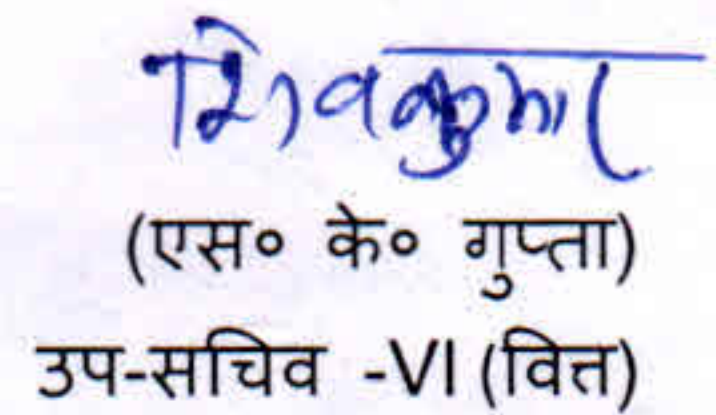 शिवकुमार
(एस० के० गुप्ता)
उप-सचिव -VI (वित्त)